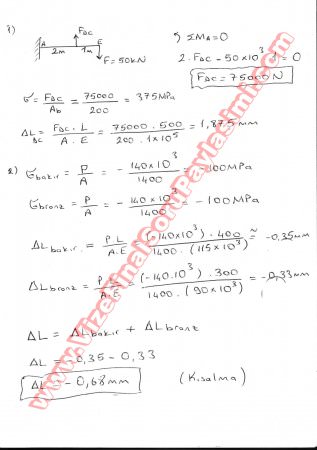 1)
FBC
A E
2m 1m
F=50kN
ΣMA=0
2.FBC - 50x10³ = 0
FBC = 75000N
σ = FBC/Ab = 75000/200 = 375MPa
ΔL BC = FBC.L/A.E = 75000.500/200.1x10⁵ = 1,875mm
2) σbakır = P/A = -140x10³/1400 = -100MPa
σbronz = P/A = -140x10³/1400 = -100MPa
ΔLbakır = P.L/A.E = (-140x10³).400/1400.(115x10³) ≅ -0,35mm
ΔLbronz = P.L/A.E = (-140.10³).300/1400.(90x10³) = -0,33mm
ΔL = ΔLbakır + ΔLbronz
ΔL = -0,35 - 0,33
ΔL = -0,68mm (Kısalma)
www.VizeFinalSoruPaylasimi.com